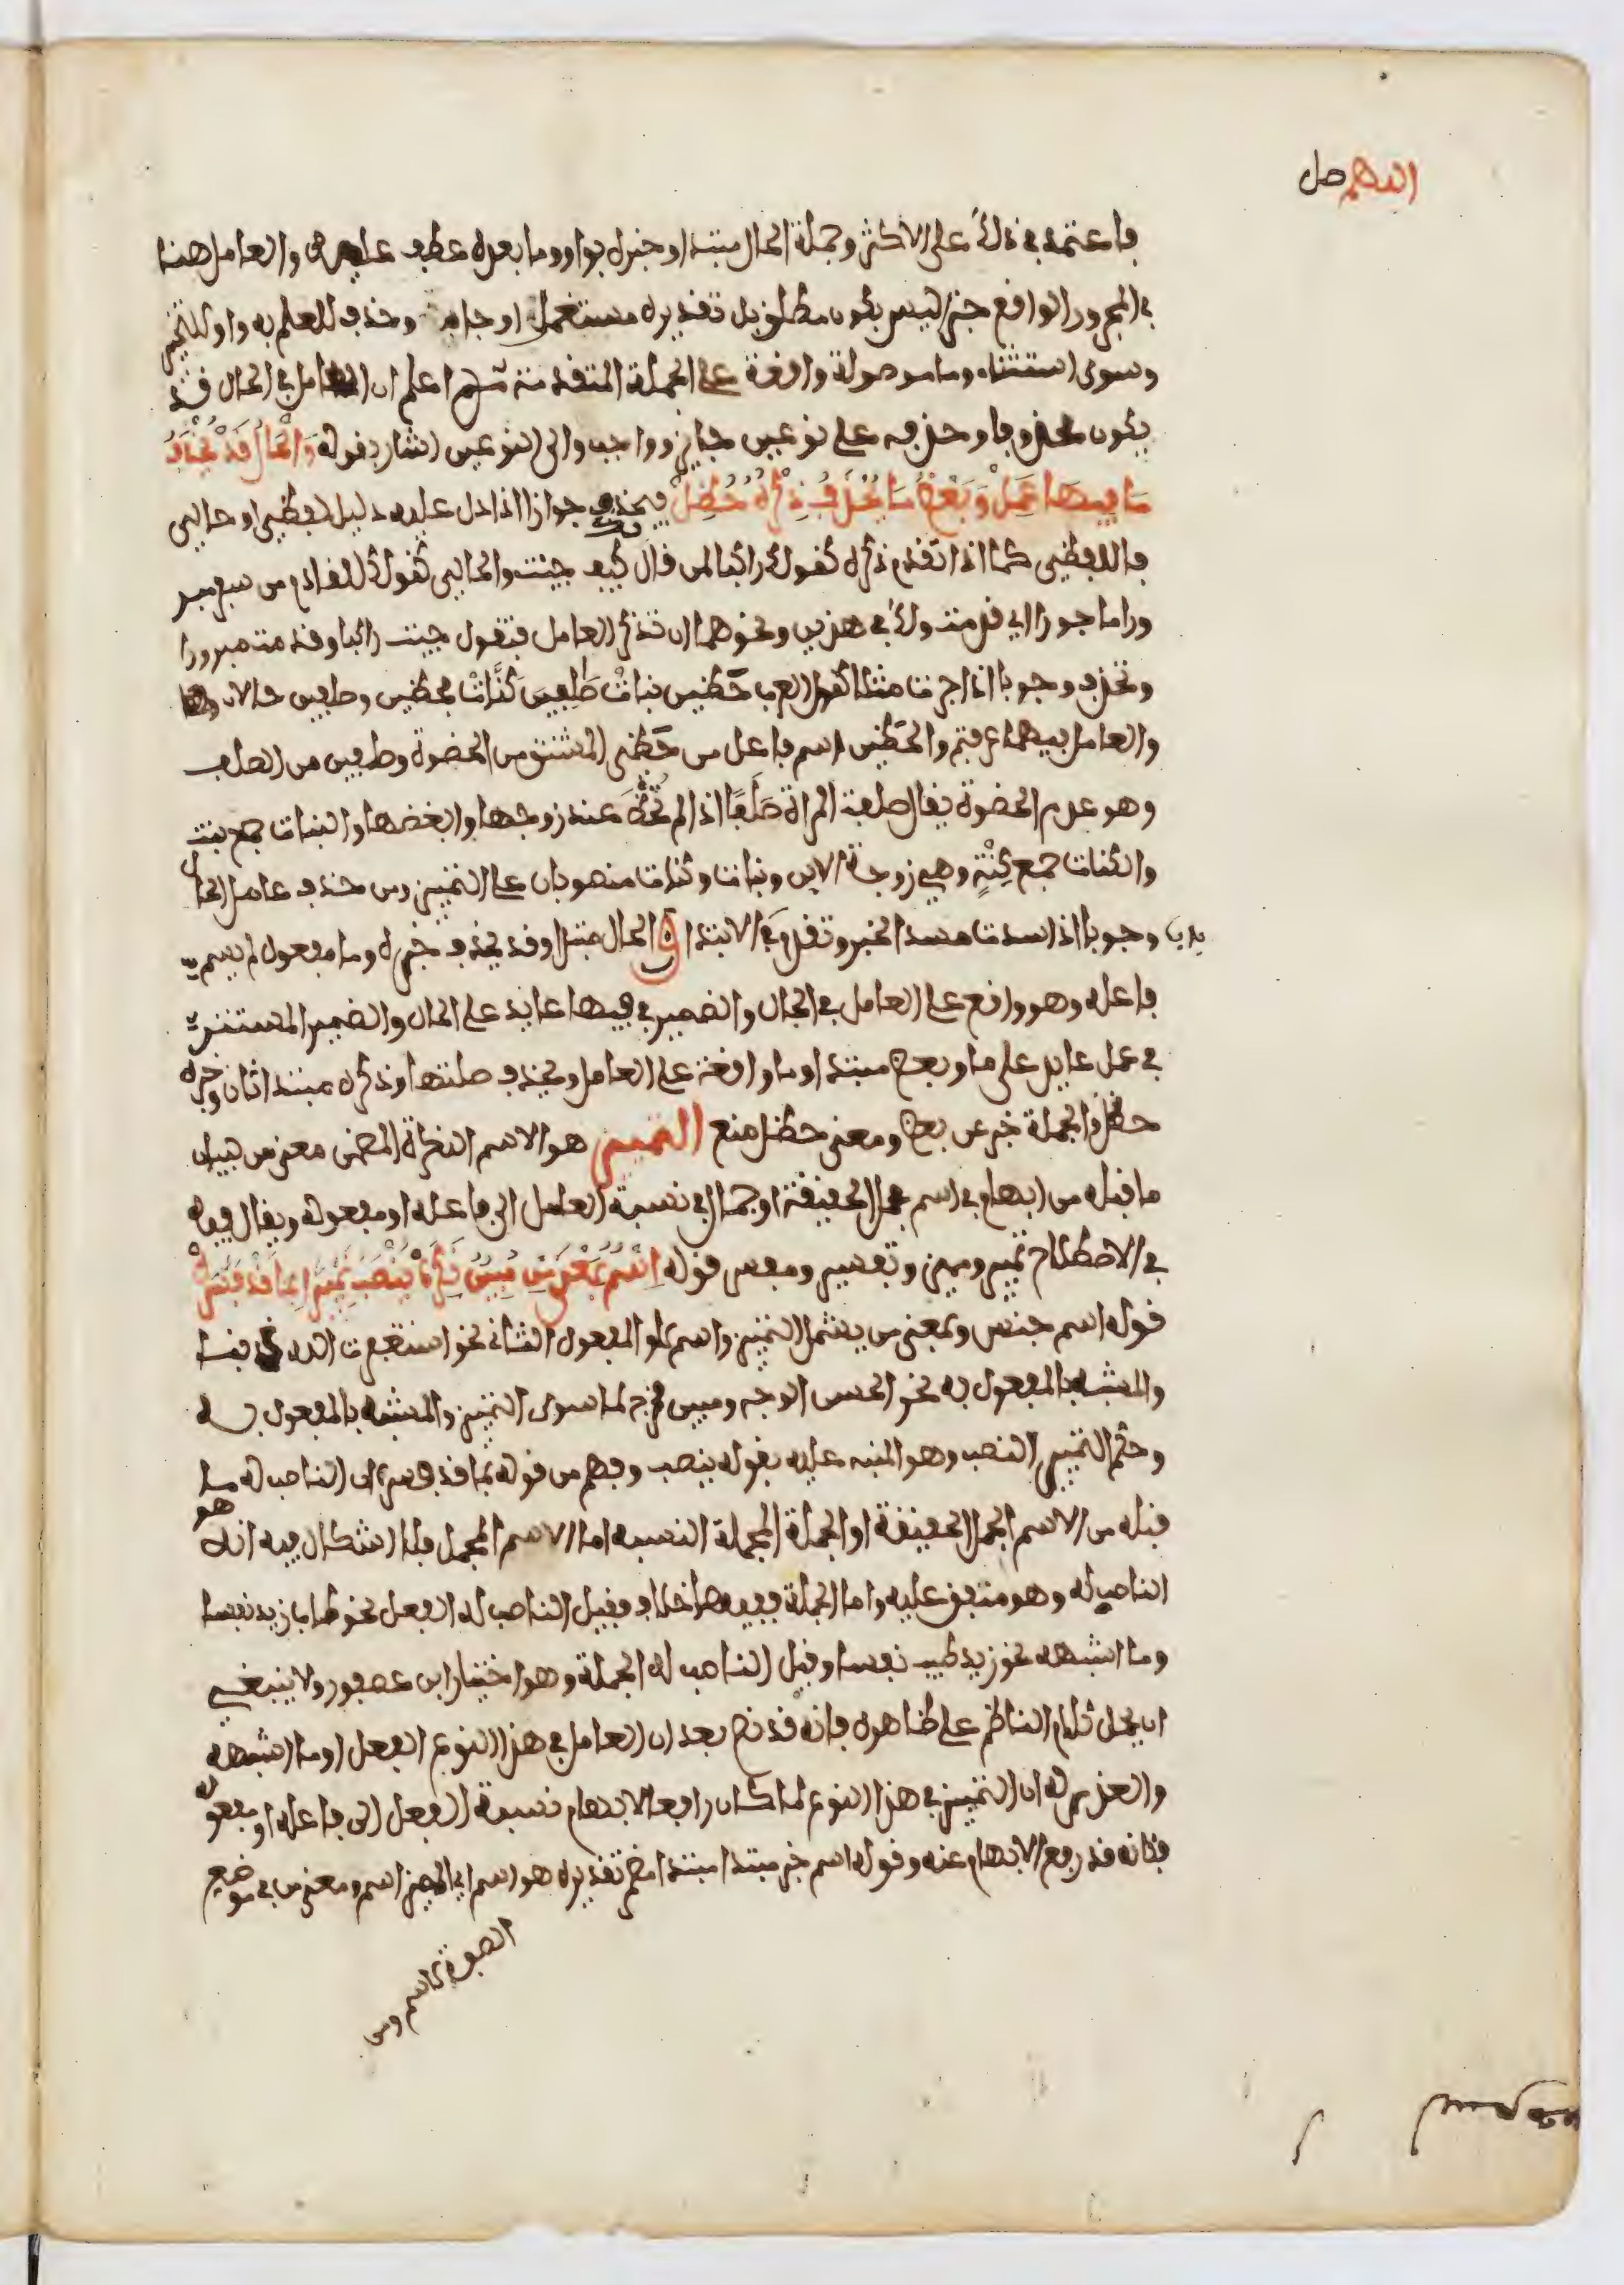 اللهم صل
فاعتمد في ذلك على الاكثر وجملة الحال مبتدا وخبره بواو وما بعده عطف عليه والعامل هنا
في المجرور الواقع خبر ليس بكون مطلق بل تقديره مستعمل او جاء وحذف للعلم به واو للتخيير
وسوى استثناء وما موصولة واقعة على الجملة المتقدمة ثم اعلم ان العامل في الحال قد
يكون محذوفا وحذفه على نوعين جايز وواجب والى النوعين اشار بقوله وَالحَالُ قَدْ يُحْذَفُ
مَا فِيهَا عَمِلْ وَبَعْضُ مَا يُحْذَفُ ذِكْرُهُ حُظِلْ فيحذف جوازا اذا دل عليه دليل لفظي او حالي
فاللفظي كما اذا تقدم ذكره كقولك راكبا لمن قال كيف جيت والحالي كقولك للقادم من سفر مبرورا
ماجورا اي قدمت ولك في هذين ونحوهما ان تذكر العامل فتقول جيت راكبا وقدمت مبرورا
وتحذف وجوبا اذا جرت مثلا كقول العرب حَظِيّين بناتٍ صَلِفِينَ كَنَّاتٍ فحظيين وصلفين حالان
والعامل فيهما عرفتم والحظيين اسم فاعل من حَظِي المشتق من الحضوة وصلفين من الصلف
وهو عدم الحضوة يقال صلفت المراة صَلَفًا اذا لم تحظ عند زوجها وابغضها والبنات جمع بنت
والكنات جمع كنة وهي زوجة الابن وبنات وكنات منصوبان على التمييز ومن حذف عامل الحال
وجوبا اذا سدت مسد الخبر وتقدم في الابتدا ق الحال مبتدا وقد يحذف خبره وما مفعول لم يسم
فاعله وهو واقع على العامل في الحال والضمير في فيها عايد على الحال والضمير المستتر
في عمل عايد على ما وبعض مبتدا وما واقعة على العامل ويحذف صلتها وذكره مبتدا ثان وخبره
حظل والجملة خبر عن بعض ومعنى حظل منع التمييز هو الاسم النكرة المضمن معنى من لبيان
ما قبله من ابهام في اسم مجمل الحقيقة او اجمال في نسبة العامل الى فاعله او مفعوله ويقال فيه
في الاصطلاح تمييز ومميز وتفسير ومفسر قوله اِسْمٌ بِمَعْنَى مِنْ مُبِينٌ نَكِرَهْ يُنْصَبُ تَمْيِيزًا بِمَا قَدْ فَسَّرَهْ
قوله اسم جنس وبمعنى من يشمل التمييز واسم لا والمفعول الثاني نحو استغفرت الله ذنبا
والمشبه بالمفعول به نحو الحسن الوجه ومبين مخرج لما سوى التمييز والمشبه بالمفعول به
وحكم التمييز النصب وهو المنبه عليه بقوله ينصب وفهم من قوله بما قد فسره ان الناصب له ما
قبله من الاسم المجمل الحقيقة او الجملة المجملة النسبة اما الاسم المجمل فلا اشكال فيه انه هو
الناصب له وهو متفق عليه واما الجملة ففيها خلاف فقيل الناصب له الفعل نحو طاب زيد نفسا
وما اشبهه نحو زيد طيب نفسا وقيل الناصب له الجملة وهو اختيار ابن عصفور ولا ينبغي
ان يحمل كلام الناظم على ظاهره فانه قد نص بعد ان العامل في هذا النوع الفعل او ما اشبهه
والعذر له ان التمييز في هذا النوع لما كان رافعا لابهام نسبة الفعل الى فاعله او مفعوله
فكانه قد رفع الابهام عنه وقوله اسم خبر مبتدا مبتدا مضمر تقديره هو اسم اي المميز اسم ومعنى من في موضع
الصفة لاسم ومن